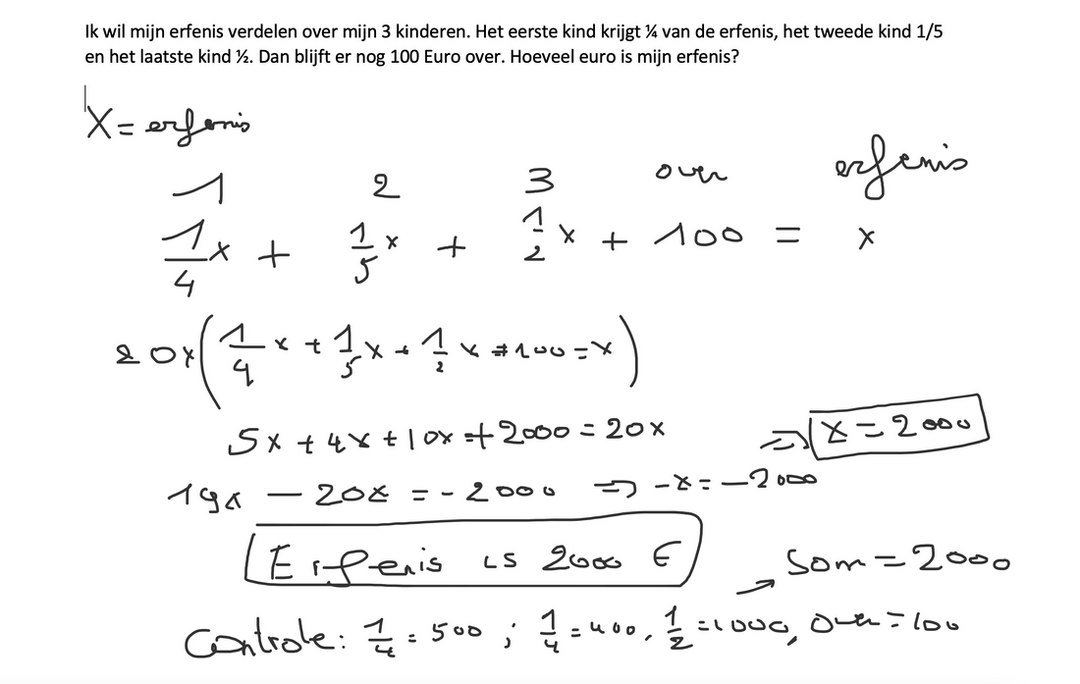 Ik wil mijn erfenis verdelen over mijn 3 kinderen. Het eerste kind krijgt ¼ van de erfenis, het tweede kind 1/5
en het laatste kind ½. Dan blijft er nog 100 Euro over. Hoeveel euro is mijn erfenis?
X = erfenis
1 2 3 over erfenis
1/4 x + 1/5 x + 1/2 x + 100 = x
20x(1/4 x + 1/5 x + 1/2 x + 100 = x)
5x + 4x + 10x + 2000 = 20x
19x - 20x = - 2000 => -x = -2000 => x = 2000
Erfenis is 2000 €
Controle: 1/4 = 500 ; 1/4 = 400, 1/2 = 1000, over = 100 → som = 2000